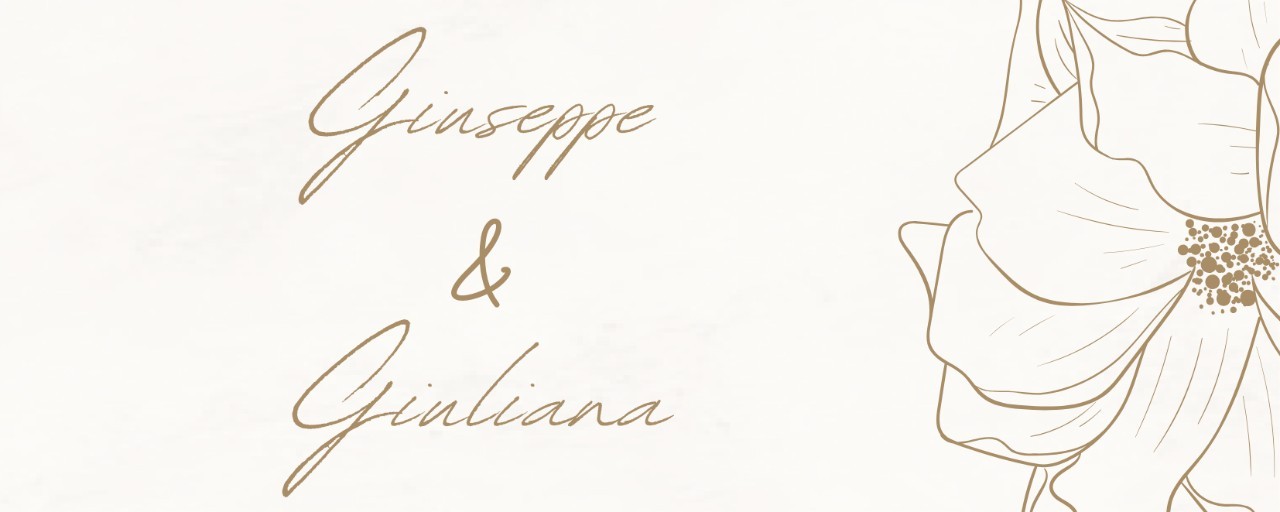 Giuseppe
&
Giuliana